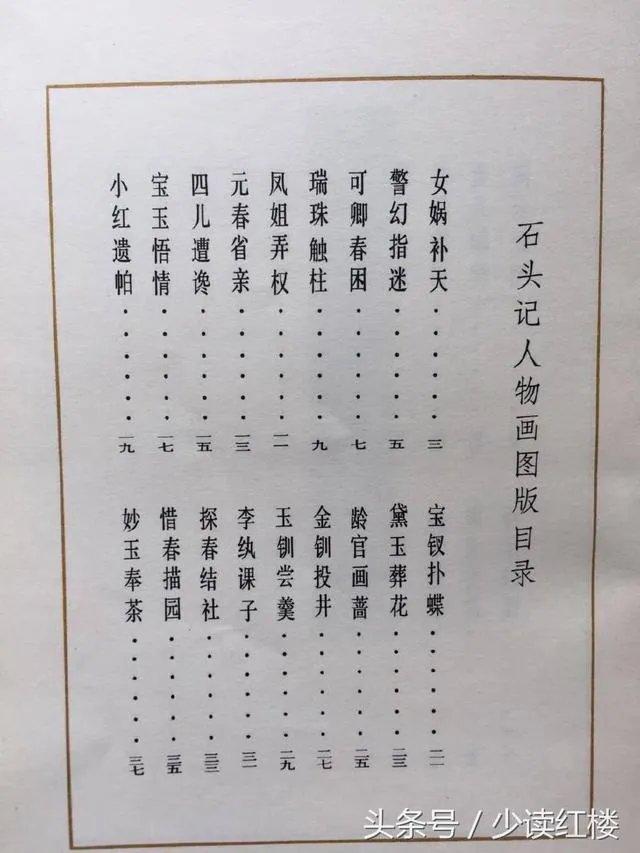 石头记人物画图版目录
女娲补天······三
警幻指迷······五
可卿春困······七
瑞珠触柱······九
凤姐弄权······一一
元春省亲······一三
四儿遭谗······一五
宝玉悟情······一七
小红遗帕······一九
宝钗扑蝶······二一
黛玉葬花······二三
龄官画蔷······二五
金钏投井······二七
玉钏尝羹······二九
李纨课子······三一
探春结社······三三
惜春描园······三五
妙玉奉茶······三七
头条号 / 少读红楼